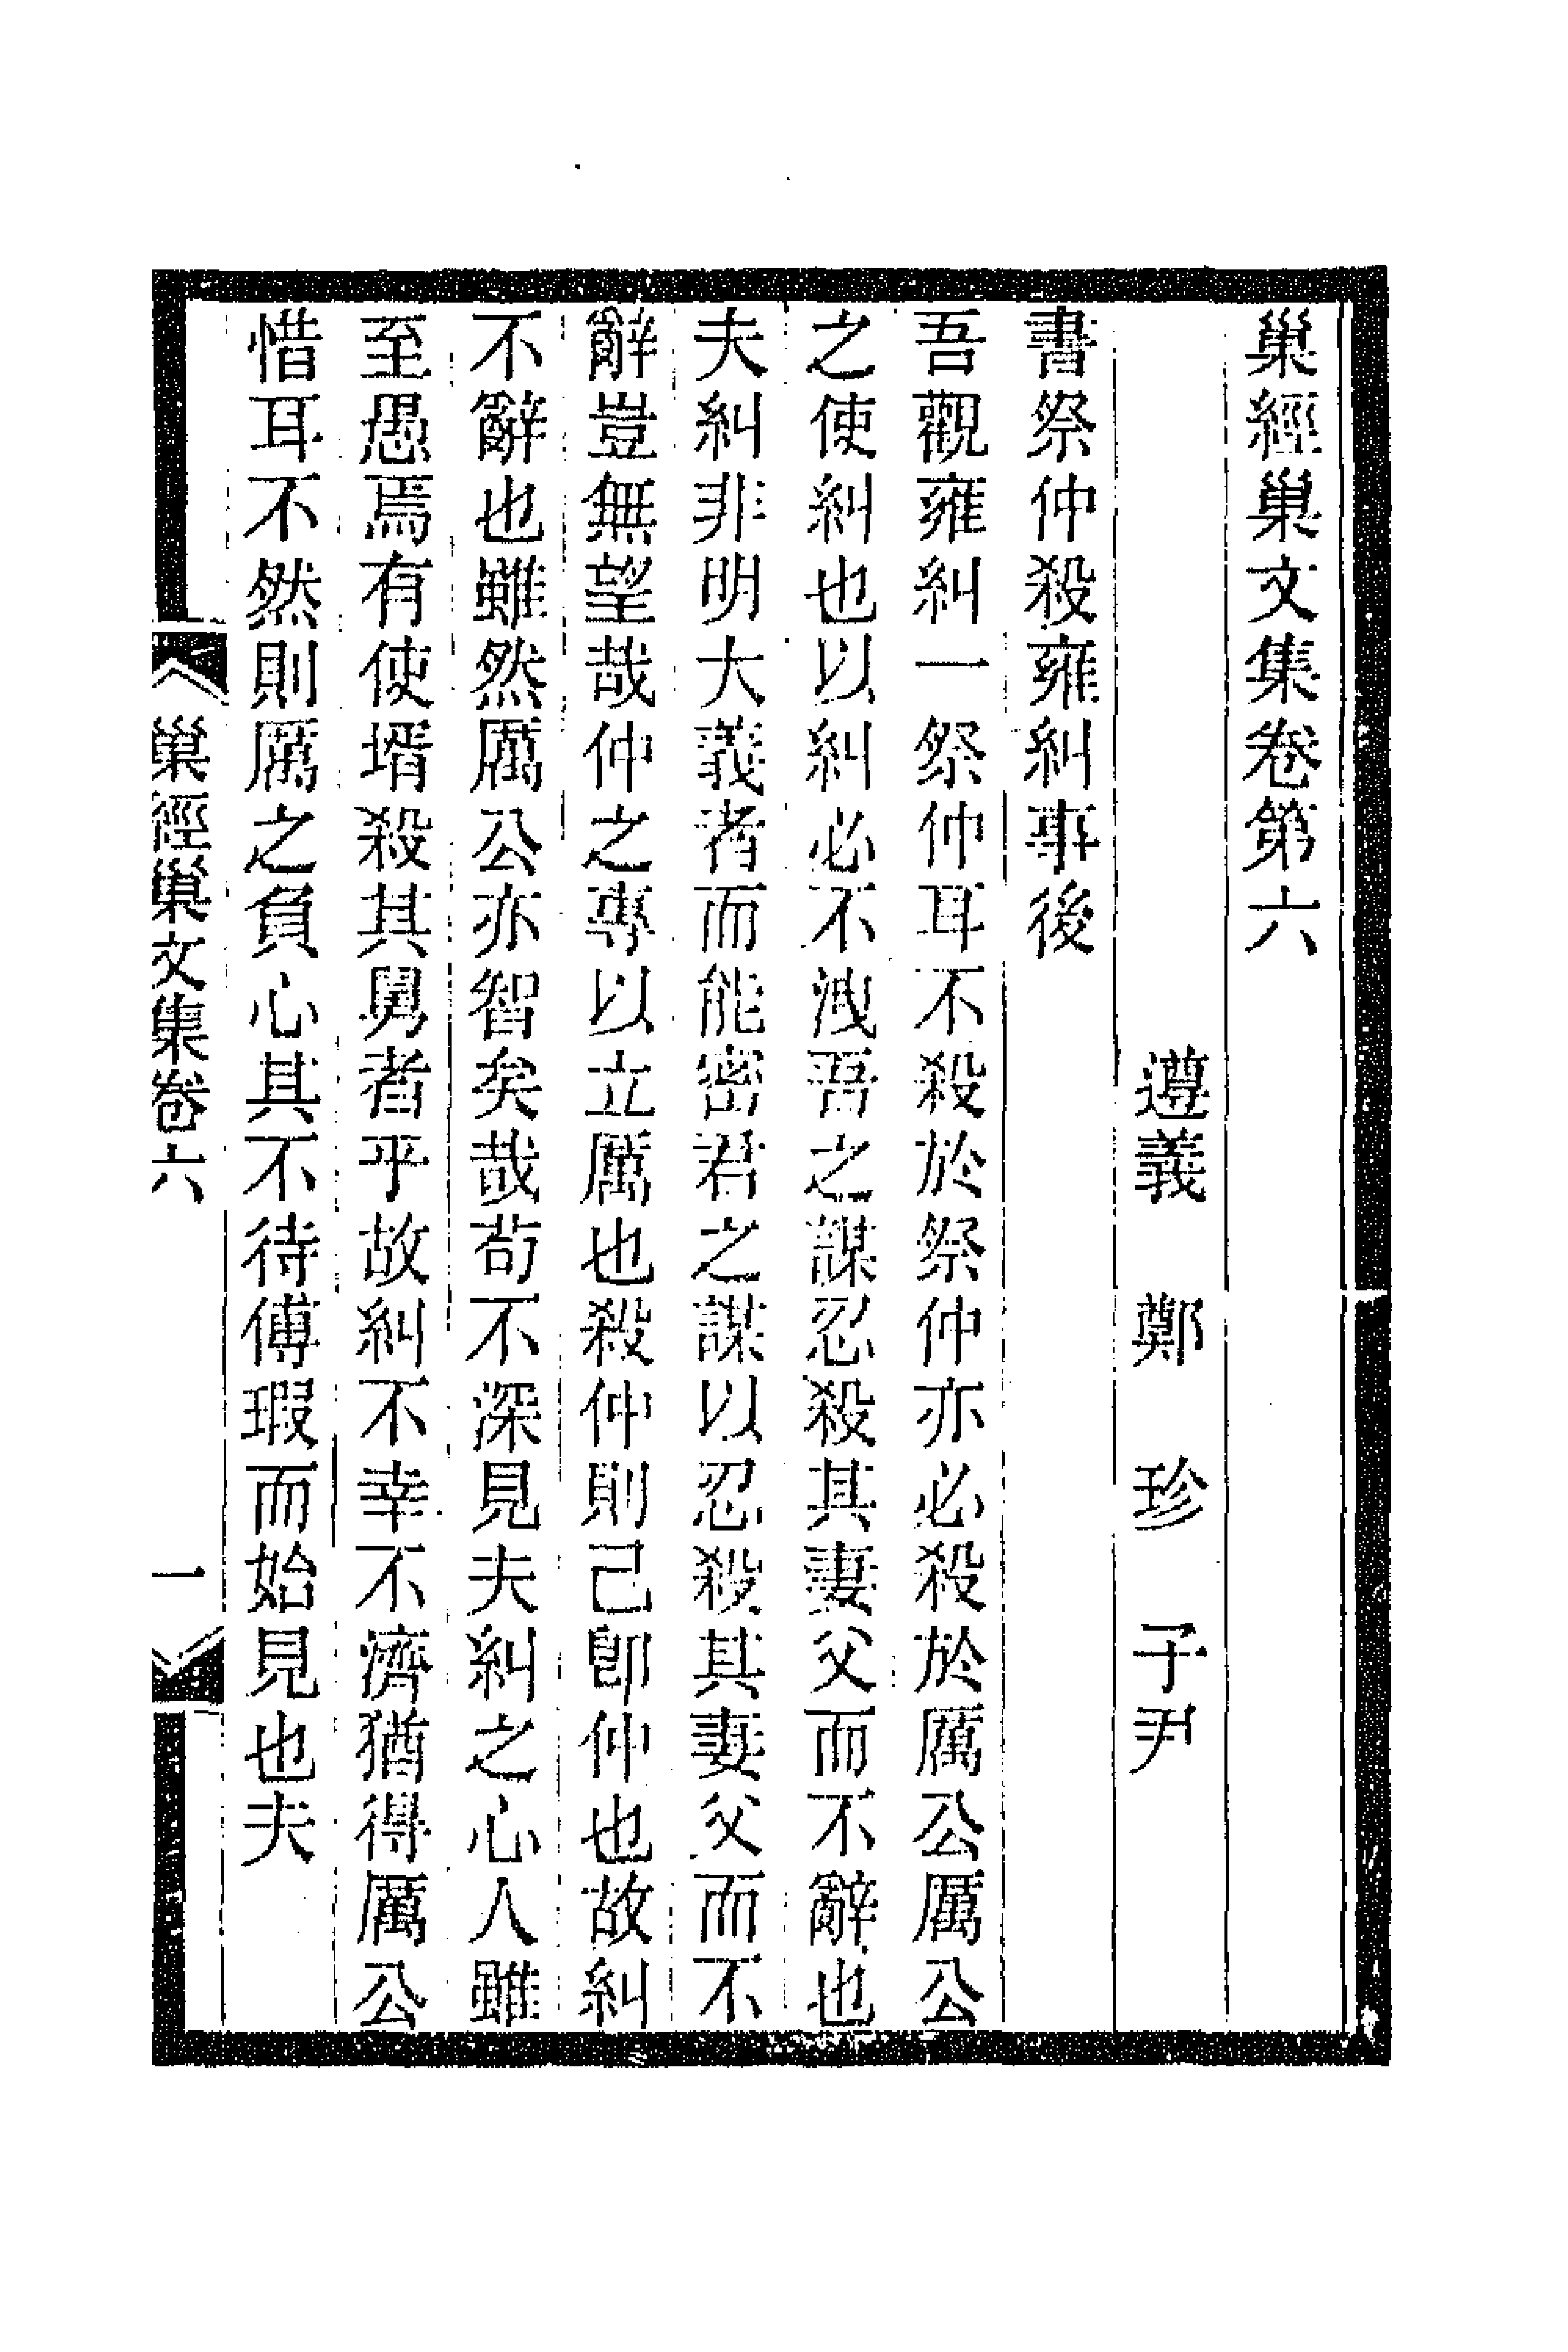 巢經巢文集卷第六
遵義　鄭　珍　子尹
書祭仲殺雍糾事後
吾觀雍糾一祭仲耳不殺於祭仲亦必殺於厲公厲公
之使糾也以糾必不洩吾之謀忍殺其妻父而不辭也
夫糾非明大義者而能密君之謀以忍殺其妻父而不
辭豈無望哉仲之專以立厲也殺仲則己卽仲也故糾
不辭也雖然厲公亦智矣哉茍不深見夫糾之心人雖
至愚焉有使壻殺其舅者乎故糾不幸不濟猶得厲公
惜耳不然則厲之負心其不待傅瑕而始見也夫
巢經巢文集卷六
一